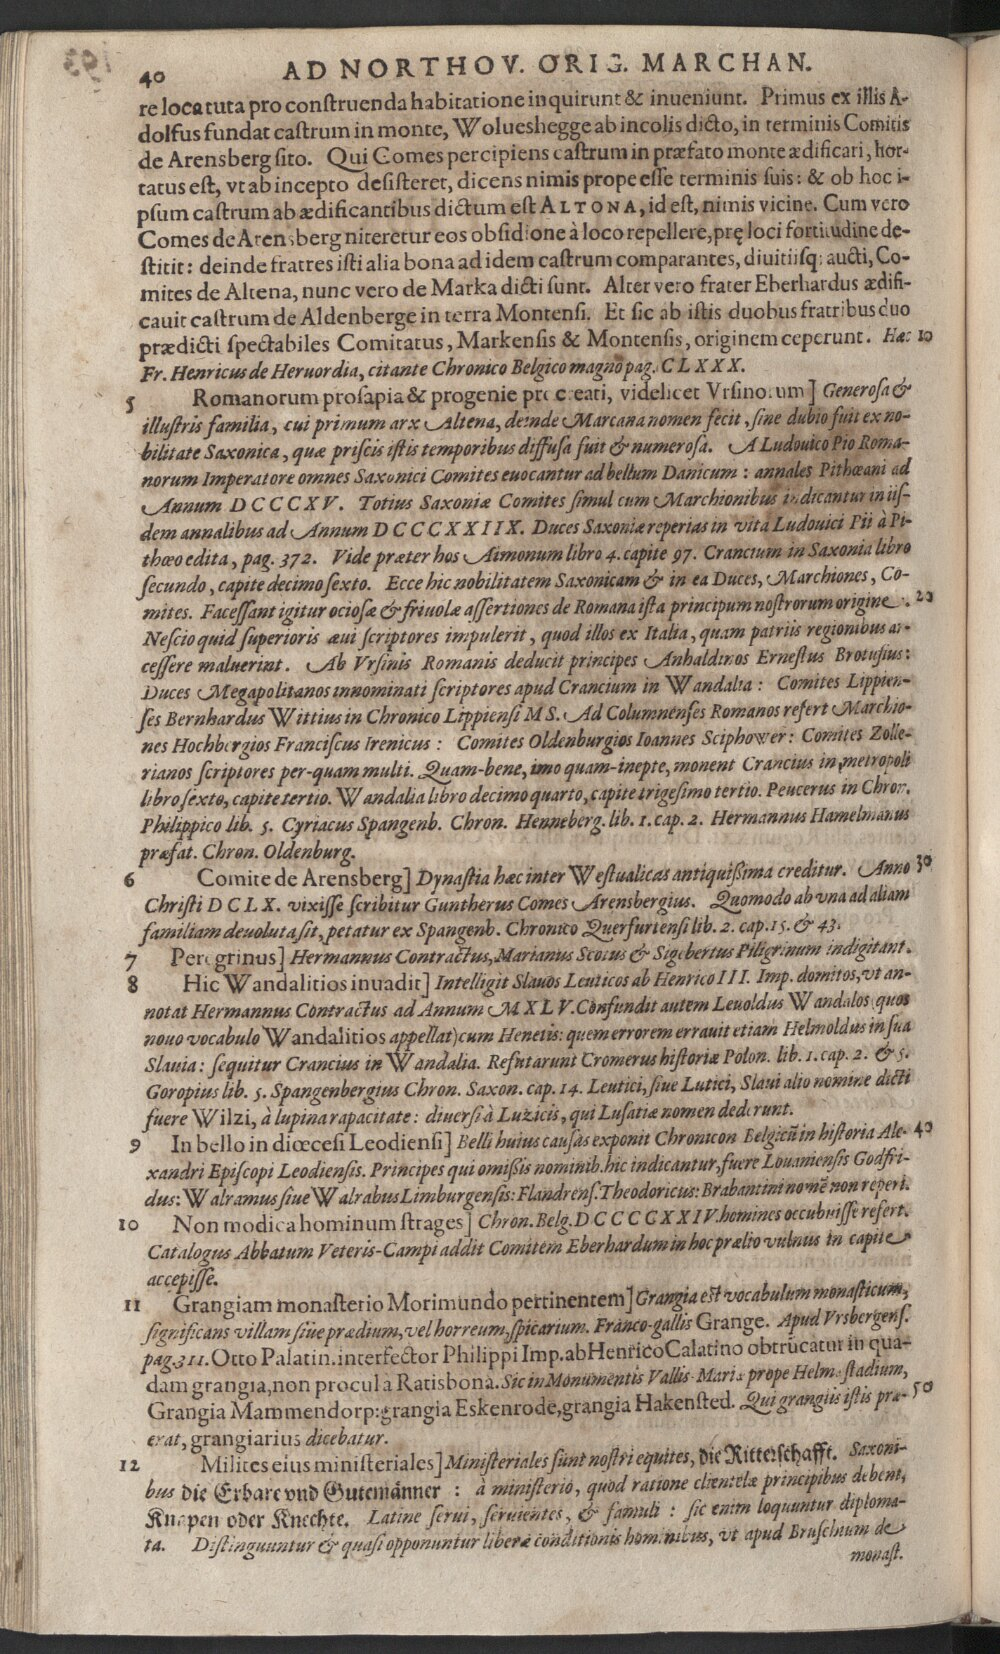 40 AD NORTHOV. ORIG. MARCHAN.
re loca tuta pro construenda habitatione inquirunt & inueniunt. Primus ex illis A-
dolfus fundat castrum in monte, Wolueshegge ab incolis dicto, in terminis Comitis
de Arensberg sito. Qui Comes percipiens castrum in præfato monte ædificari, hor-
tatus est, vt ab incepto desisteret, dicens nimis prope esse terminis suis: & ob hoc i-
psum castrum ab ædificantibus dictum est ALTONA, id est, nimis vicine. Cum vero
Comes de Arensberg niteretur eos obsidione à loco repellere, prę loci fortitudine de-
stitit: deinde fratres isti alia bona ad idem castrum comparantes, diuitiisq; aucti, Co-
mites de Altena, nunc vero de Marka dicti sunt. Alter vero frater Eberhardus ædifi-
cauit castrum de Aldenberge in terra Montensi. Et sic ab istis duobus fratribus duo
prædicti spectabiles Comitatus, Markensis & Montensis, originem ceperunt. Hæc 10
Fr. Henricus de Heruordia, citante Chronico Belgico magno pag. CLXXX.
5 Romanorum prosapia & progenie procreati, videlicet Vrsinorum] Generosa &
illustris familia, cui primum arx Altena, deinde Marcana nomen fecit, sine dubio fuit ex no-
bilitate Saxonica, quæ priscis istis temporibus diffusa fuit & numerosa. A Ludouico Pio Roma-
norum Imperatore omnes Saxonici Comites euocantur ad bellum Danicum: annales Pithœani ad
Annum DCCCXV. Totius Saxoniæ Comites simul cum Marchionibus indicantur in iis-
dem annalibus ad Annum DCCCXXIIX. Duces Saxoniæ reperias in vita Ludouici Pii à Pi-
thœo edita, pag. 372. Vide præter hos Aimonum libro 4. capite 97. Crancium in Saxonia libro
secundo, capite decimo sexto. Ecce hic nobilitatem Saxonicam & in ea Duces, Marchiones, Co-
mites. Facessant igitur ociosæ & friuolæ assertiones de Romana ista principum nostrorum origine. 20
Nescio quid superioris æui scriptores impulerit, quod illos ex Italia, quam patriis regionibus ar-
cessere maluerint. Ab Vrsinis Romanis deducit principes Anhaldinos Ernestus Brotusius:
Duces Megapolitanos innominati scriptores apud Crancium in Wandalia: Comites Lippien-
ses Bernhardus Wittius in Chronico Lippiensi MS. Ad Columnenses Romanos refert Marchio-
nes Hochbergios Franciscus Irenicus: Comites Oldenburgios Ioannes Sciphower: Comites Zolle-
rianos scriptores per-quam multi. Quam-bene, imo quam-inepte, monent Crancius in metropoli
libro sexto, capite tertio. Wandalia libro decimo quarto, capite trigesimo tertio. Peucerus in Chron.
Philippico lib. 5. Cyriacus Spangenb. Chron. Henneberg. lib. 1. cap. 2. Hermannus Hamelmanus
præfat. Chron. Oldenburg.
6 Comite de Arensberg] Dynastia hæc inter Westualicas antiquißima creditur. Anno 30
Christi DCLX. vixisse scribitur Guntherus Comes Arensbergius. Quomodo ab vna ad aliam
familiam deuoluta sit, petatur ex Spangenb. Chronico Querfuriensi lib. 2. cap. 15. & 43.
7 Peregrinus] Hermannus Contractus, Marianus Scotus & Sigebertus Piligrinum indigitant.
8 Hic Wandalitios inuadit] Intelligit Slauos Leuticos ab Henrico III. Imp. domitos, vt an-
notat Hermannus Contractus ad Annum MXLV. Confundit autem Leuoldus Wandalos (quos
nouo vocabulo Wandalitios appellat) cum Henetis: quem errorem errauit etiam Helmoldus in sua
Slauia: sequitur Crancius in Wandalia. Refutarunt Cromerus historiæ Polon. lib. 1. cap. 2. & 5.
Goropius lib. 5. Spangenbergius Chron. Saxon. cap. 14. Leutici, siue Lutici, Slaui alio nomine dicti
fuere Wilzi, à lupina rapacitate: diuersi à Luzicis, qui Lusatiæ nomen dederunt.
9 In bello in diœcesi Leodiensi] Belli huius causas exponit Chronicon Belgicũ in historia Ale- 40
xandri Episcopi Leodiensis. Principes qui omißis nominib. hic indicantur, fuere Louaniensis Godfri-
dus: Walramus siue Walrabus Limburgensis: Flandrens. Theodoricus: Brabantini nomẽ non reperi.
10 Non modica hominum strages] Chron. Belg. DCCCCXXIV. homines occubuisse refert.
Catalogus Abbatum Veteris-Campi addit Comitem Eberhardum in hoc prælio vulnus in capite
accepisse.
11 Grangiam monasterio Morimundo pertinentem] Grangia est vocabulum monasticum,
significans villam siue prædium, vel horreum, spicarium. Franco-gallis Grange. Apud Vrsbergens.
pag. 311. Otto Palatin. interfector Philippi Imp. ab Henrico Calatino obtrũcatur in qua-
dam grangia, non procul à Ratisbona. Sic in Monumentis Vallis-Mariæ prope Helmstadium,
Grangia Mammendorp: grangia Eskenrode, grangia Hakensted. Qui grangiis istis præ- 50
erat, grangiarius dicebatur.
12 Milites eius ministeriales] Ministeriales sunt nostri equites, die Ritterschafft. Saxoni-
bus die Erbare vnd Gutemänner: à ministerio, quod ratione clientelæ principibus debent,
Knapen oder Knechte. Latine serui, seruientes, & famuli: sic enim loquuntur diploma-
ta. Distinguuntur & quasi opponuntur liberæ conditionis hominibus, vt apud Bruschium de
monast.